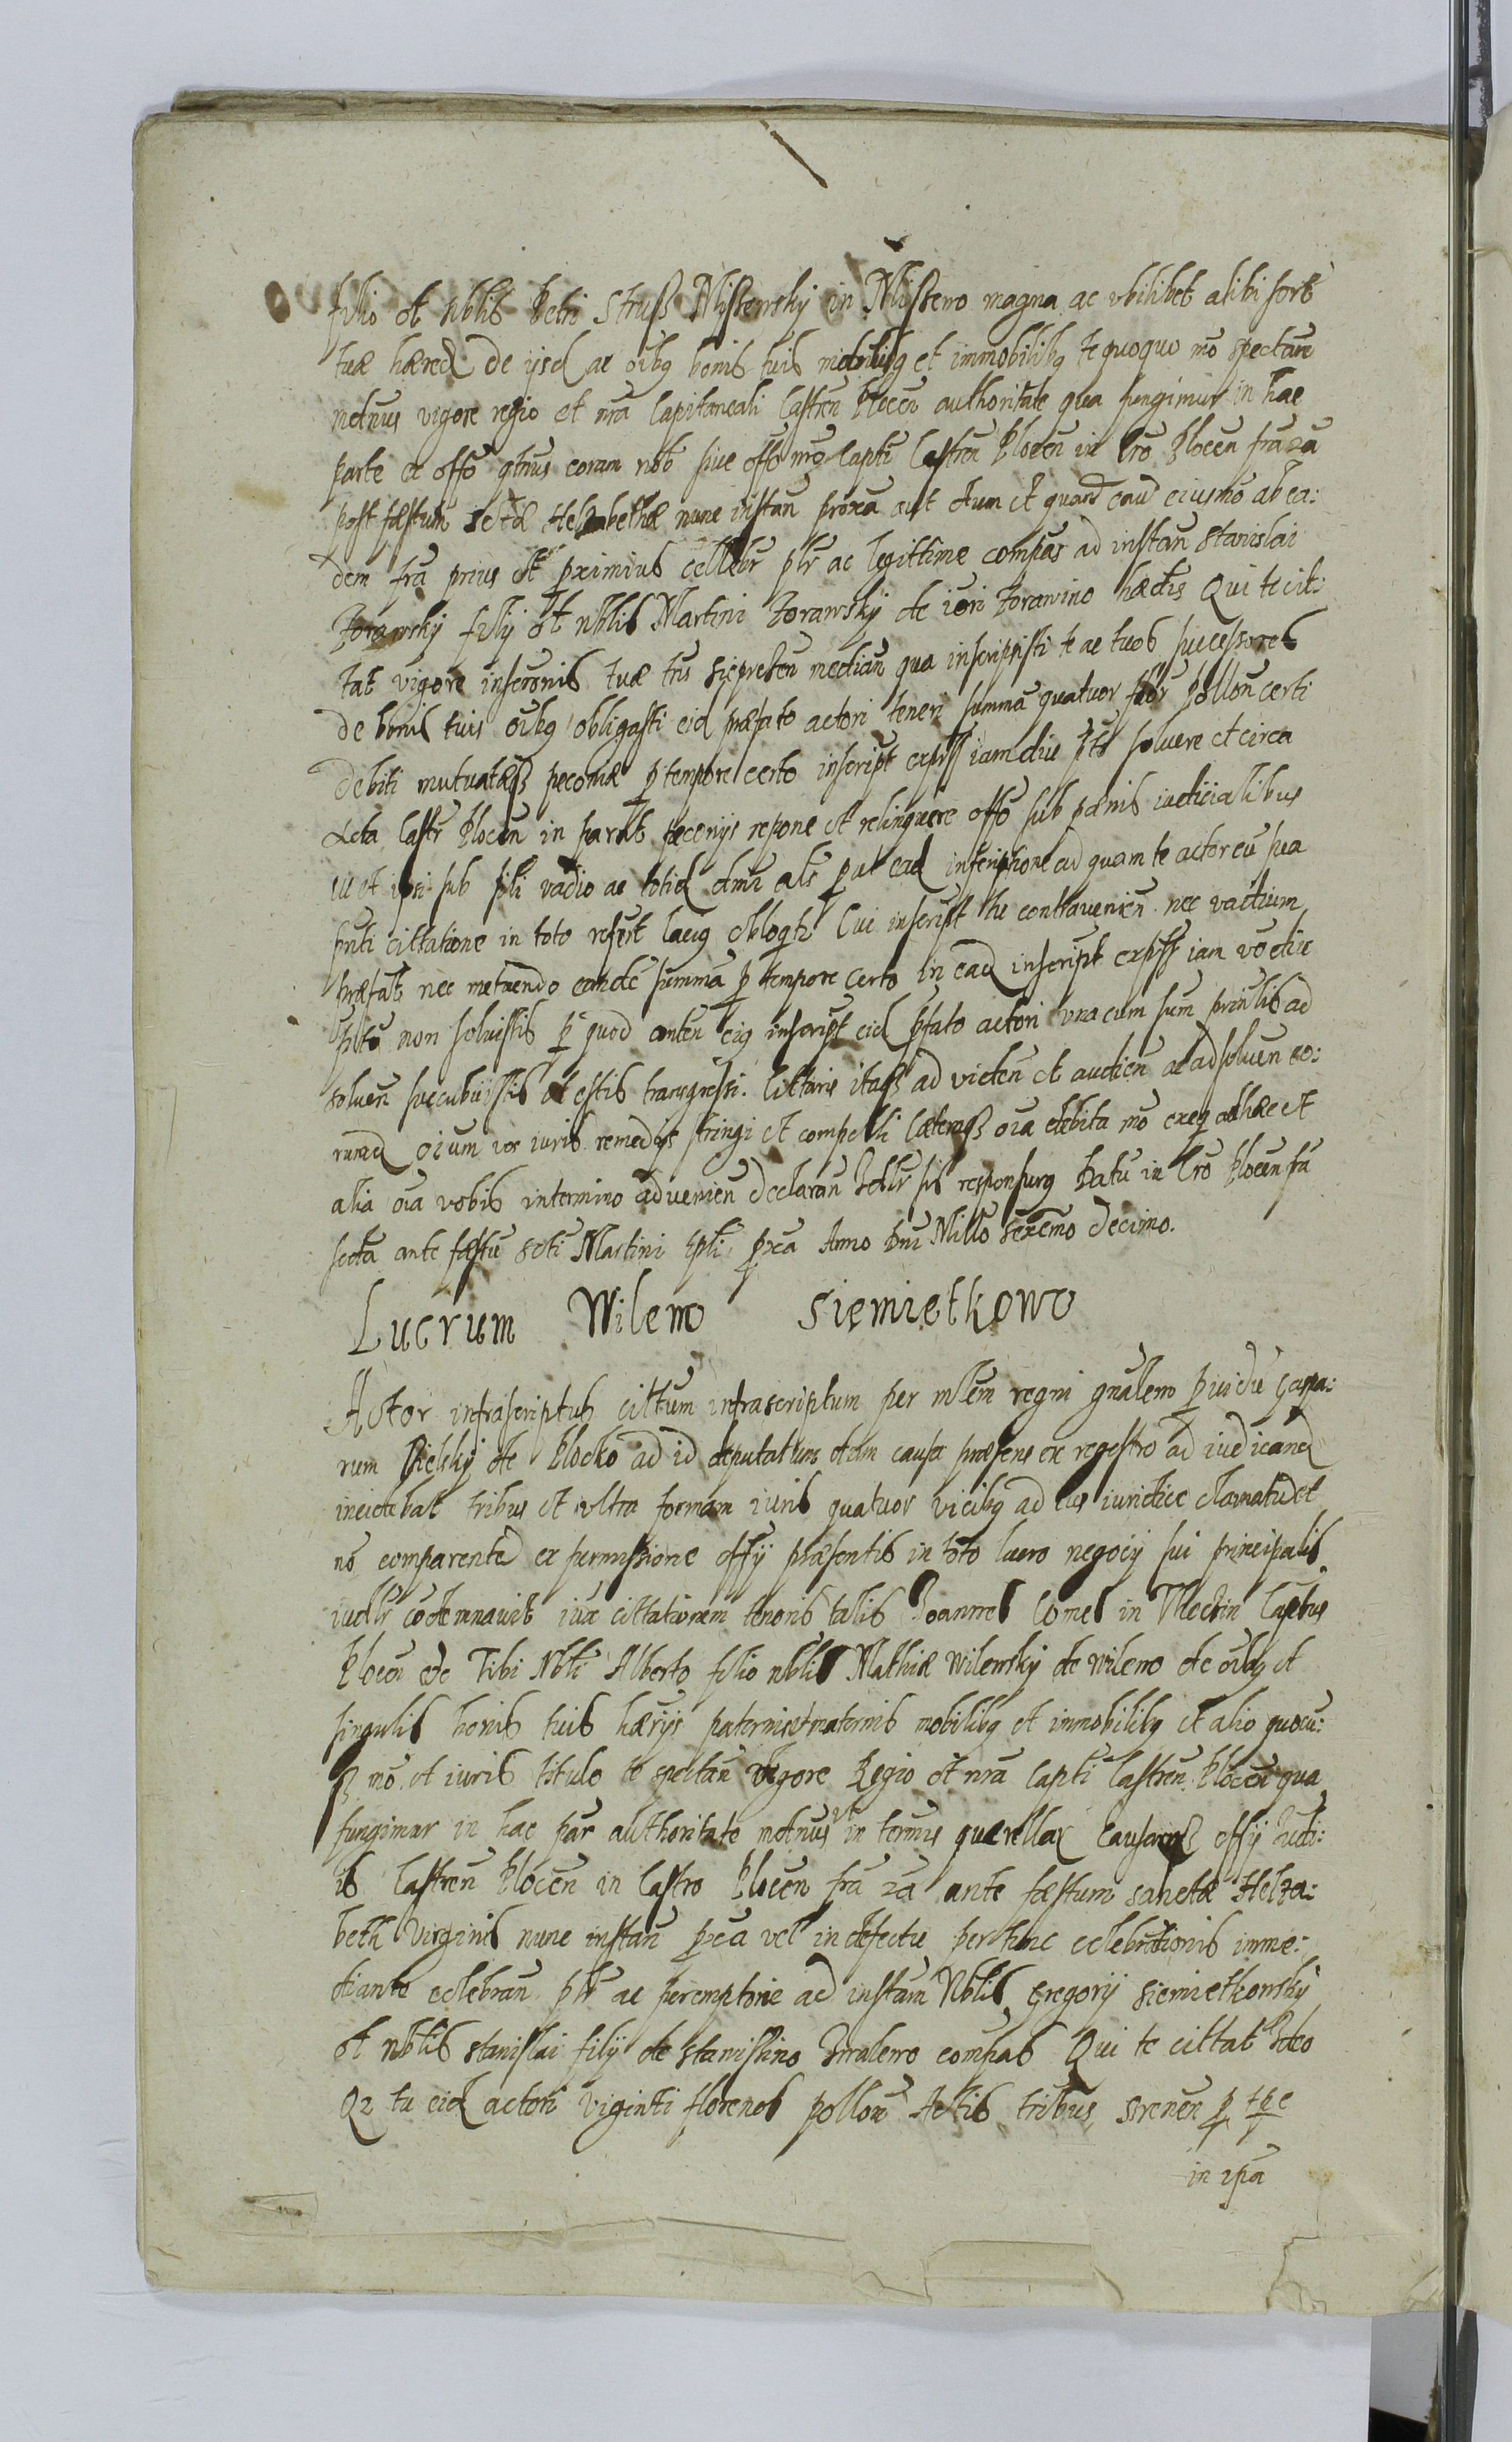 filio ol nblis Petri Struß Missewsky in Missewo magna ac vbilibet alibi fort
tuæ hæred de ijsd ac oibg bonis tuis mobilibg et immobilibg te quoquo mo spectan
mdmus vigore regio et nra Capitaneali Castren Plocen authoritate qua fungimur in hac
parte ex offo qtnus coram nob siue offo nro Capti Castren Plocen in Cro Plocen fra 2a
post fæstum sctæ Helzabethæ nunc instan proxa aut dum et quand caus eiusmo ab ea:
dem fra prius et pximius cellebr plr ac legittime compas ad instan Stanislai
Zorawsky filij ol nblis Martini Zorawsky de Zorawino hædis Qui te cit:
tat vigore inscronis tuæ trs Sieprcen median qua inscripsisti te ac tuos successores
de bonis tuis oibg obligasti eid præfato actori teneri summa quatuor flor Pollon certi
debiti mutuatæq3 pecuniæ p tempore certo inscript expss iam diu ptto soluere et circa
Acta Castr Plocen in parats pecunijs repone et relinquere offo sub pænis iudicialibus
iu et ipsi sub sili vadio ac totid dmi als put ead inscriptione ad quam te actor cu sua
pnti cittatione in toto refert lacig obloqtr Cui inscript tu contrauenien nec vadium
præfat nec metuendo eande summa p tempore certo in ead inscript expss iam vo diu
ptto non soluistis p quod anten eig inscript eid pfato actori vna cum sum prinlis ad
soluen succubuistis et estis transgressi. Cittaris itaq3 ad viden et audien ac ad soluen eo:
rund oium vos iuris remedijs stringi et compelli Cæteraq3 oia debita mo exeq ad hæc et
alia oia vobis in termino aduenien declaran Iudlr sis responsurg Datu in Cro Plocen fa
sexta ante fæstu scti Martini Epi pxa Anno Dni Millo sexcmo decimo.
Lucrum Wilewo Siemietkowo
Actor infrascriptus cittum infrascriptum per mlem regni gnalem puidu Gaspa:
rum Bielsky de Plocko ad id deputatum dum causa præsens ex regestro ad iudicand
incidebat tribus et vltra formam iuris quatuor vicibg ad ius iuridice clamatu et
no comparente ex permissione offij præsentis in toto lucro negocij sui principalis
iudlr codemnauit iux cittationem tenoris talis Joannes Comes in Capt̃us
Plocen etc Tibi Nbli Alberto filio nblis Mathiæ Wilewsky de Wilewo de oibg et
singulis bonis tuis hærijs paternis et maternis mobilibg et immobilibg et alio quocu:
q3 mo et iuris titulo te spectan vigore Regio et nra Capti Castren Plocen qua
fungimur in hac par authoritate mdmus vt in termis querellar Causarq3 offij Iudi:
is Castren Plocen in Castro Plocen fra 2a ante fæstum sanctæ Helza:
beth Virginis nunc instan pxa vel in defectu per hunc celebrationis imme:
diante celebran plr ac peremptorie ad instam Nblis Gregorij Siemietkowsky
ol nblis Stanislai filij de compas Qui te cittat Ideo
Q2 tu eid actori viginti florenos pollon Actis tribus p tpe
in ipa